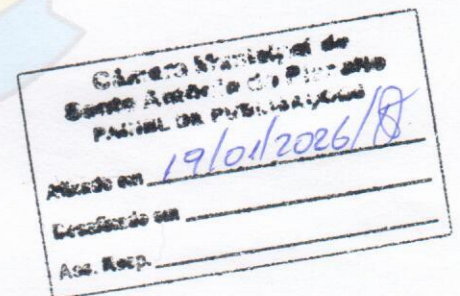 Câmara Municipal de
Santo Antônio do
PAINEL DE PUBLICAÇÕES
Afixado em 19/01/2026
Desafixado em
Ass. Resp.